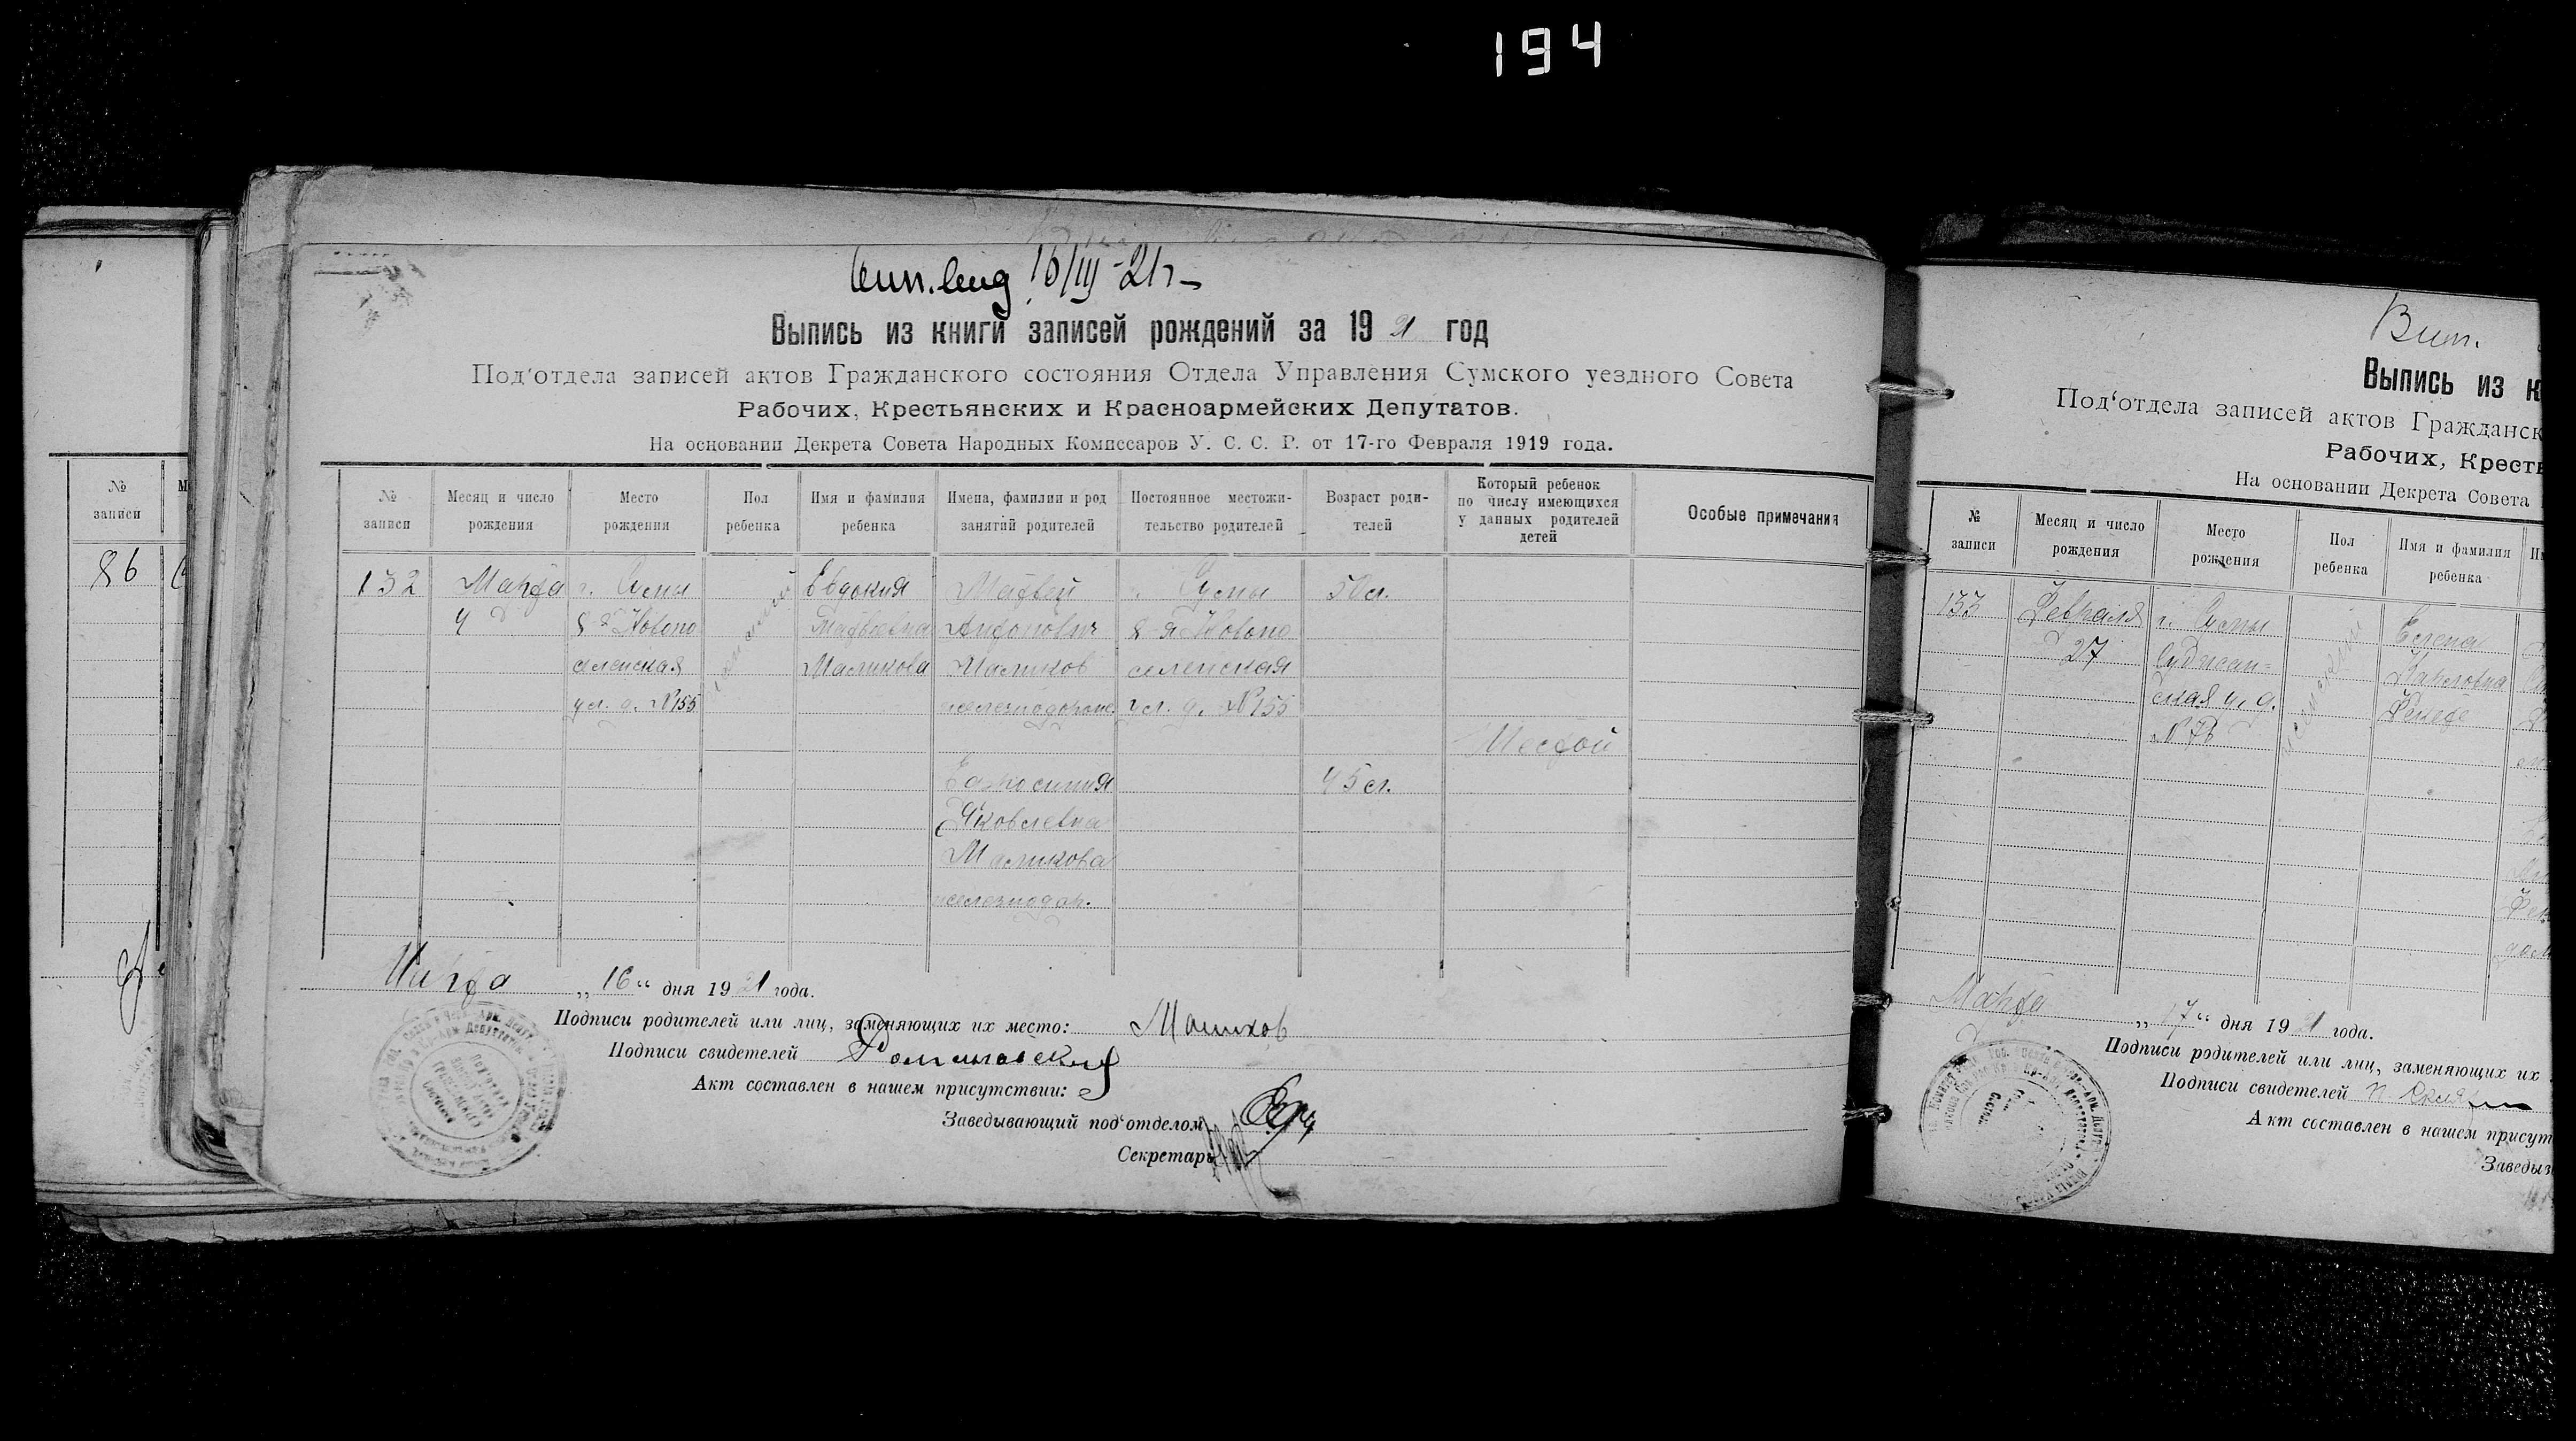 194
16/III-21г-
Выпись из книги записей рождений за 1921 год
Под'отдела записей актов Гражданского состояния Отдела Управления Сумского уездного Совета
Рабочих, Крестьянских и Красноармейских Депутатов.
На основании Декрета Совета Народных Комиссаров У. С. С. Р. от 17-го Февраля 1919 года.
№ записи
Месяц и число рождения
Место рождения
Пол ребенка
Имя и фамилия ребенка
Имена, фамилии и род занятий родителей
Постоянное местожительство родителей
Возраст родителей
Который ребенок по числу имеющихся у данных родителей детей
Особые примечания
132
Марта
4
г. Сумы
8я Новопо
селенская
ул. д. №155
Евдокия
Матвеевна
Маликова
Матвей
Антонович
Маликов
железнодорож.
г. Сумы
8-я Новопо
селенская
ул. д. №155
50 л.
Шестой
Яковлевна
Маликова
железнодор.
45 л.
Марта „16“ дня 1921 года.
Подписи родителей или лиц, заменяющих их место: Маликов
Подписи свидетелей
Акт составлен в нашем присутствии:
Заведывающий под'отделом
Секретарь
№
записи
86
Вып.
Выпись из к
Под'отдела записей актов Гражданск
Рабочих, Крестья
На основании Декрета Совета
№ записи
Месяц и число рождения
Место рождения
Пол ребенка
Имя и фамилия ребенка
133
Февраля
27
г. Сумы
№ 76
Елена
Марта „17“ дня 1921 года.
Подписи родителей или лиц, заменяющих их
Подписи свидетелей
Акт составлен в нашем присут
Заведыв